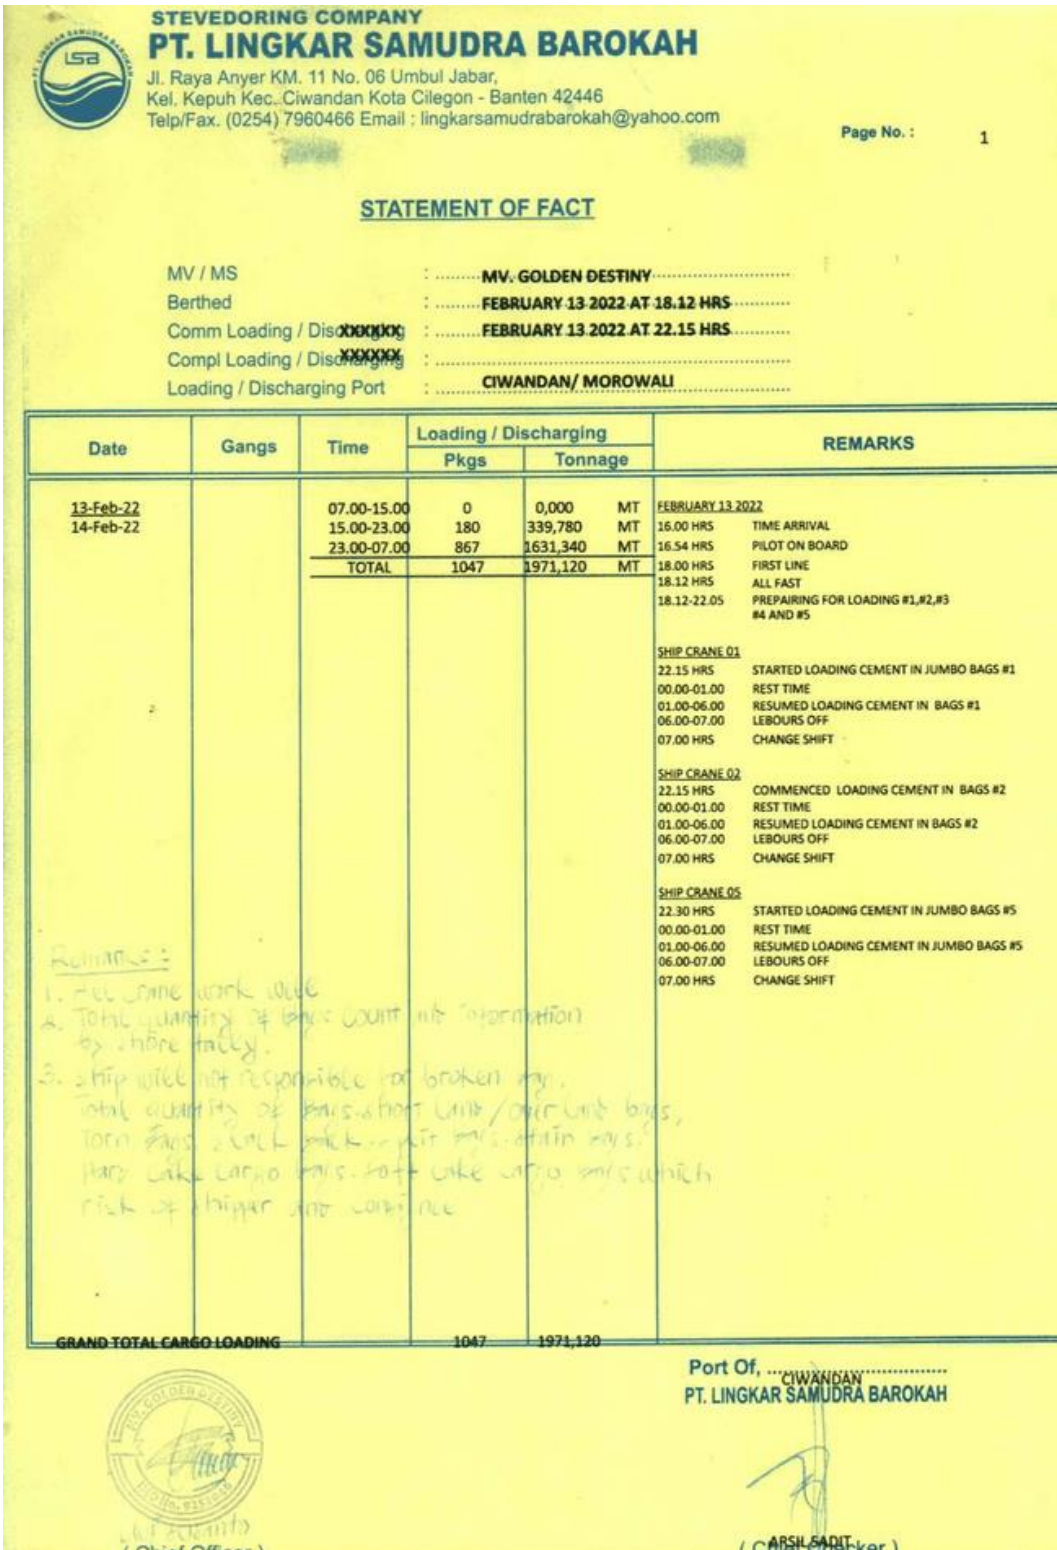 STEVEDORING COMPANY
PT. LINGKAR SAMUDRA BAROKAH
LSB
Jl. Raya Anyer KM. 11 No. 06 Umbul Jabar,
Kel. Kepuh Kec. Ciwandan Kota Cilegon - Banten 42446
Telp/Fax. (0254) 7960466 Email : lingkarsamudrabarokah@yahoo.com
Page No. : 1
STATEMENT OF FACT
MV / MS : MV. GOLDEN DESTINY
Berthed : FEBRUARY 13 2022 AT 18.12 HRS
Comm Loading / Discharging : FEBRUARY 13 2022 AT 22.15 HRS
Compl Loading / Discharging :
Loading / Discharging Port : CIWANDAN/ MOROWALI
Date Gangs Time Loading / Discharging REMARKS
Pkgs Tonnage
13-Feb-22 07.00-15.00 0 0,000 MT FEBRUARY 13 2022
14-Feb-22 15.00-23.00 180 339,780 MT 16.00 HRS TIME ARRIVAL
23.00-07.00 867 1631,340 MT 16.54 HRS PILOT ON BOARD
TOTAL 1047 1971,120 MT 18.00 HRS FIRST LINE
18.12 HRS ALL FAST
18.12-22.05 PREPAIRING FOR LOADING #1,#2,#3
#4 AND #5
SHIP CRANE 01
22.15 HRS STARTED LOADING CEMENT IN JUMBO BAGS #1
00.00-01.00 REST TIME
01.00-06.00 RESUMED LOADING CEMENT IN BAGS #1
06.00-07.00 LEBOURS OFF
07.00 HRS CHANGE SHIFT
SHIP CRANE 02
22.15 HRS COMMENCED LOADING CEMENT IN BAGS #2
00.00-01.00 REST TIME
01.00-06.00 RESUMED LOADING CEMENT IN BAGS #2
06.00-07.00 LEBOURS OFF
07.00 HRS CHANGE SHIFT
SHIP CRANE 05
22.30 HRS STARTED LOADING CEMENT IN JUMBO BAGS #5
00.00-01.00 REST TIME
01.00-06.00 RESUMED LOADING CEMENT IN JUMBO BAGS #5
06.00-07.00 LEBOURS OFF
07.00 HRS CHANGE SHIFT
1. crane work well
2. Total quantity of bags count information
by shore tally.
3. Ship will not responsible for broken
Total quantity of bags short land / over land bags,
Torn bags stain bags.
Hard cake cargo bags. soft cake cargo bags which
risk of shipper and
GRAND TOTAL CARGO LOADING 1047 1971,120
Port Of, CIWANDAN
PT. LINGKAR SAMUDRA BAROKAH
MV. GOLDEN DESTINY
ARSIL SADIT
( Chief Officer ) ( Chief Checker )